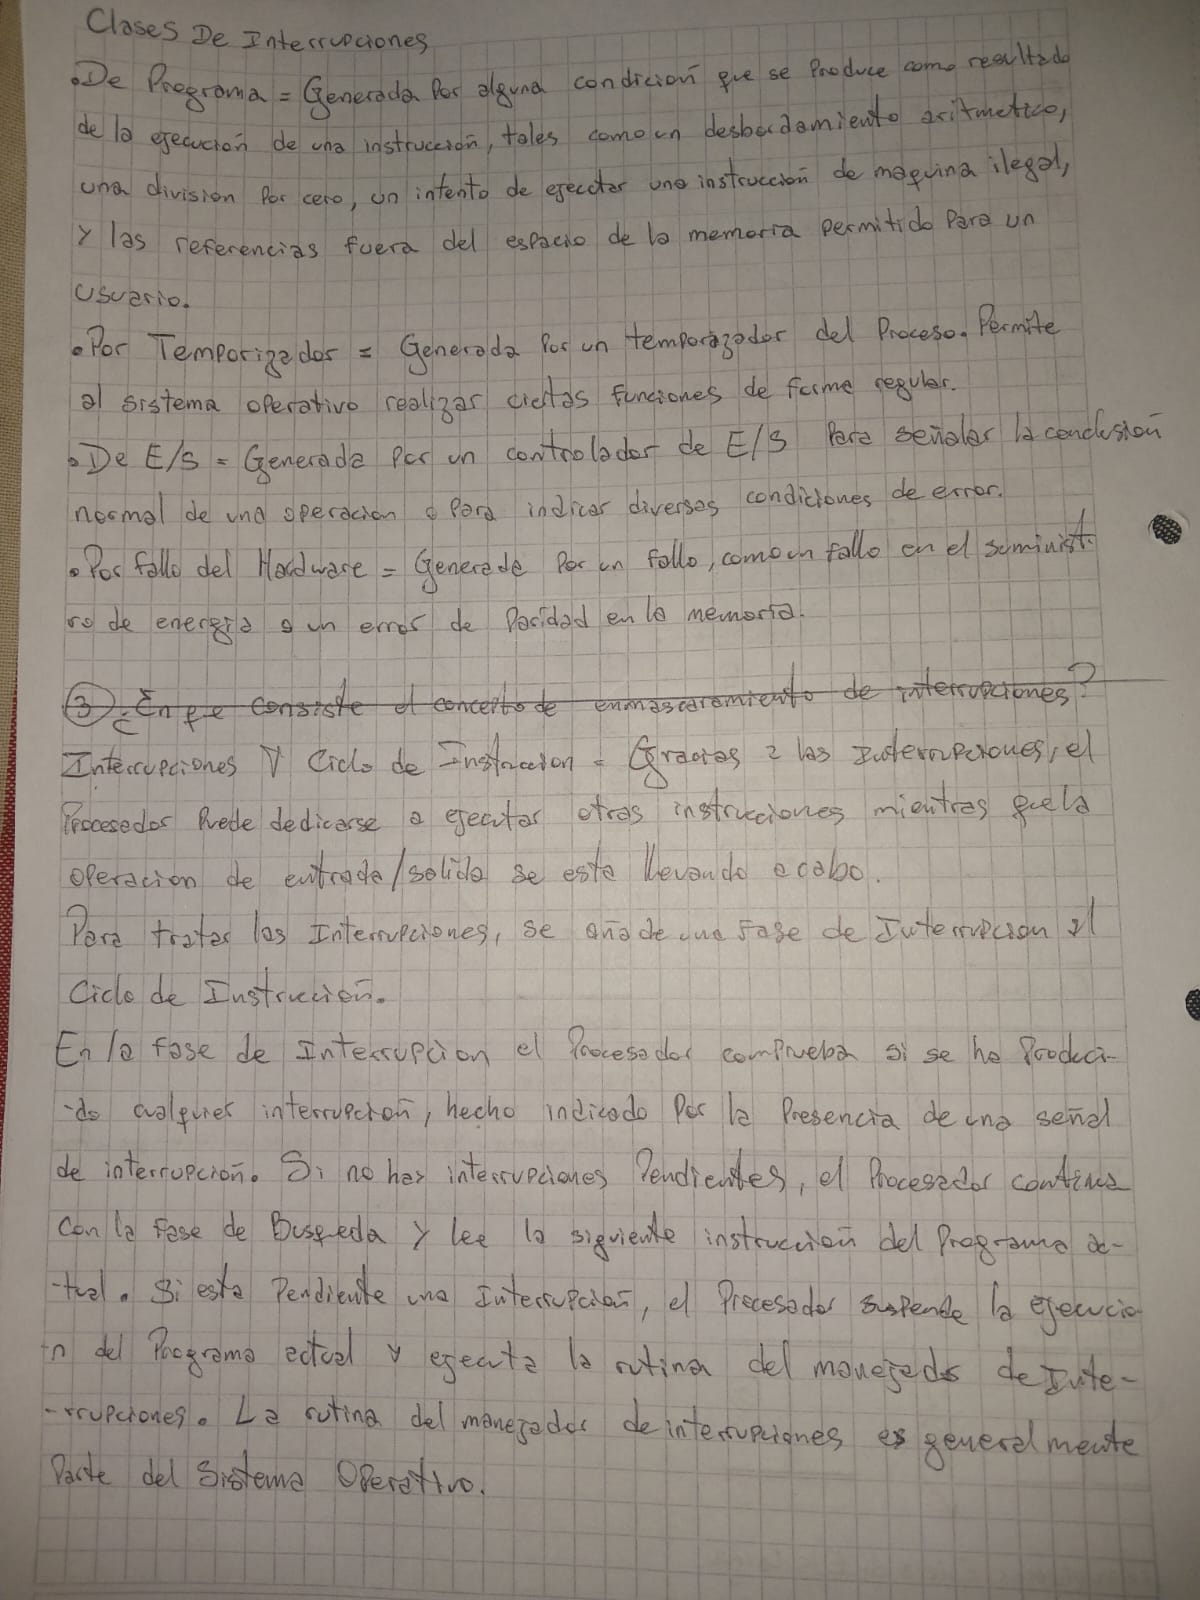 Clases De Interrupciones
• De Programa = Generada Por alguna condicioń que se Produce como resultado
de la ejecución de una instrucción, tales como un desbordamiento aritmetico,
una division Por cero, un intento de ejecutar una instrucción de maquina ilegal,
y las referencias fuera del espacio de la memoria permitido Para un
usuario.
• Por Temporizador = Generada Por un temporizador del Proceso. Permite
al sistema operativo realizar ciertas funciones de forma regular.
• De E/S = Generada Por un controlador de E/S Para señalar la conclusión
normal de una operacion o Para indicar diversas condiciones de error.
• Por fallo del Hardware = Generada Por un fallo, como un fallo en el suminist-
ro de energía o un error de Paridad en la memoria.
③ ¿En que consiste el concepto de enmascaramiento de interrupciones?
Interrupciones Y Ciclo de Instruccion = Gracias a las Interrupciones, el
Procesador Puede dedicarse a ejecutar otras instrucciones mientras que la
operacion de entrada/salida se esta llevando a cabo.
Para tratar las Interrupciones, se añade una Fase de Interrupcion al
Ciclo de Instrucción.
En la fase de Interrupcion el Procesador comprueba si se ha Produci-
-do cualquier interrupción, hecho indicado Por la Presencia de una señal
de interrupción. Si no hay interrupciones Pendientes, el Procesador continua
Con la Fase de Busqueda y lee la siguiente instrucción del Programa ac-
-tual. Si esta Pendiente una Interrupción, el Procesador suspende la ejecucio-
-n del Programa actual y ejecuta la rutina del manejador de Inte-
-rrupciones. La rutina del manejador de interrupciones es generalmente
Parte del Sistema Operativo.